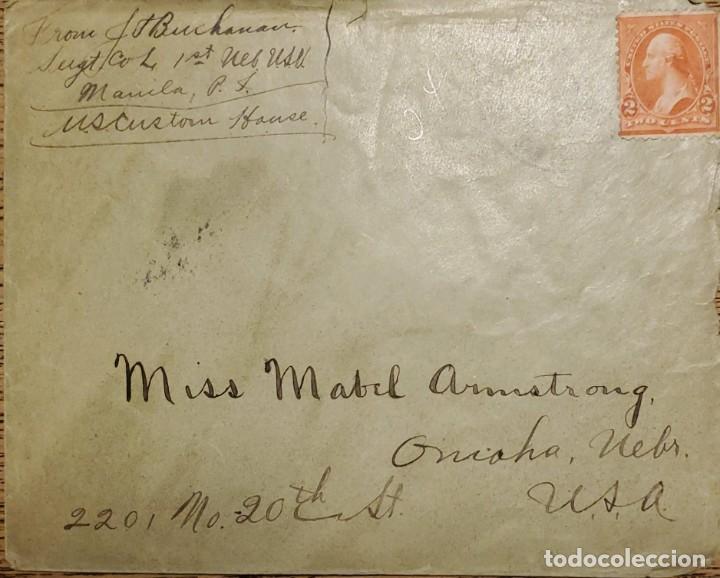 From J A Buchanan.
Sergt Co L 1st Neb USV
Manila, P. I.
US Custom House.
UNITED STATES POSTAGE
2 2
TWO CENTS
Miss Mabel Armstrong,
Omaha, Nebr.
2201 No. 20th St. U.S.A.
todocoleccion
todocoleccion.net